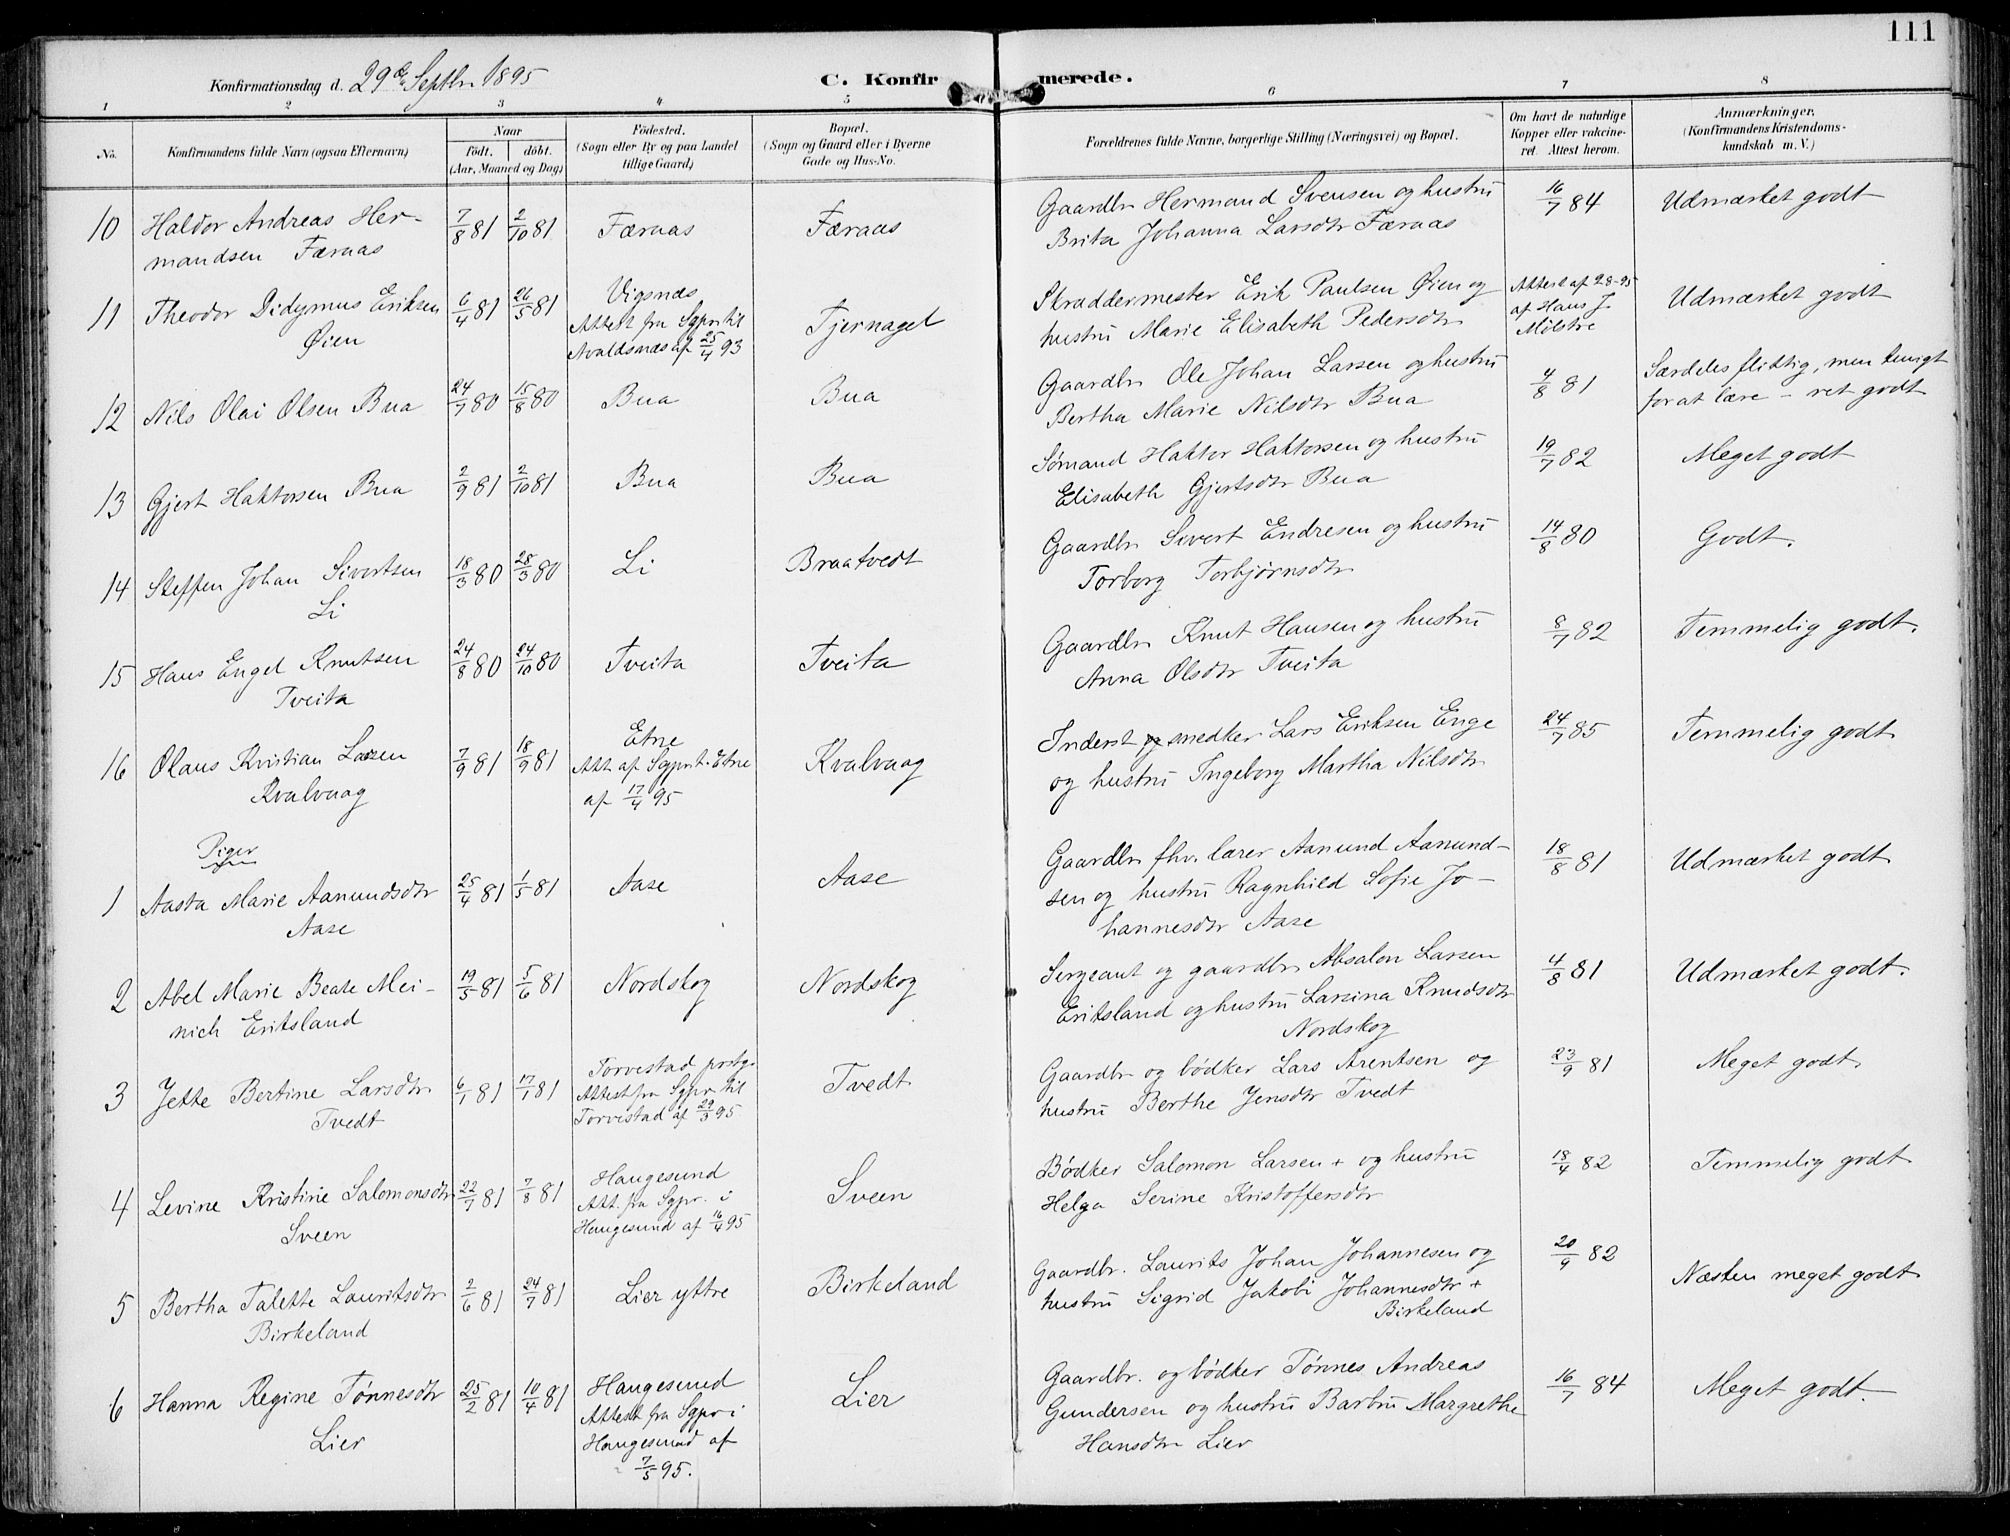 111
Konfirmationsdag d. 29de Septbr 1895
C. Konfirmerede.
1 2 3 4 5 6 7 8
No.
Konfirmandens fulde Navn (ogsaa Efternavn)
Naar
Födt. döbt.
(Aar, Maaned og Dag)
Födested.
(Sogn eller By og paa Landet
tillige Gaard)
Bopæl.
(Sogn og Gaard eller i Byerne
Gade og Hus-No.
Forældrenes fulde Navne, borgerlige Stilling (Næringsvei) og Bopæl.
Om havt de naturlige
Kopper eller vakcine-
ret. Attest herom.
Anmærkninger.
(Konfirmandens Kristendoms-
kundskab m. V.)
10 Haldor Andreas Her- 7/8 81 2/10 81 Færaas Færaas Gaardbr Hermand Svensen og hustru 16/7 84 Udmærket godt
mandsen Færaas Brita Johanna Larsdtr Færaas
11 Theodor Didymus Eriksen 6/4 81 26/5 81 Vigsnæs Tjernagel Skræddermester Erik Paulsen Øien og Attest af 28-95 Udmærket godt
Øien Attest fra Sgpr. til hustru Marie Elisabeth Pedersdtr af Hans J.
Avaldsnæs af 25/4 93 Mølstre
12 Nils Olai Olsen Bua 24/7 80 15/8 80 Bua Bua Gaardbr Ole Johan Larsen og hustru 4/8 81 Særdeles flittig, men tungt
Bertha Marie Nilsdtr Bua for at lære - ret godt
13 Gjert Haktorsen Bua 2/9 81 2/10 81 Bua Bua Sømand Haktor Haktorsen og hustru 19/7 82 Meget godt
Elisabeth Gjertsdtr Bua
14 Steffen Johan Sivertsen 18/3 80 28/3 80 Li Braatvedt Gaardbr Sivert Endresen og hustru 14/8 80 Godt.
Li Torborg Torbjørnsdtr
15 Hans Engel Knutsen 24/8 80 24/10 80 Tveita Tveita Gaardbr Knut Hansen og hustru 8/7 82 Temmelig godt.
Tveita Anna Olsdtr Tveita
16 Olaus Kristian Larsen 7/9 81 18/9 81 Etne Kvalvaag Inderst og snedker Lars Eriksen Enge 24/7 85 Temmelig godt
Kvalvaag Att. af Sgpr. t. Etne og hustru Ingeborg Martha Nilsdtr
af 17/4 95
Piger
1 Aasta Marie Aanundsdtr 25/4 81 1/5 81 Aase Aase Gaardbr fhv. lærer Aanund Aanund- 18/8 81 Udmærket godt
Aase sen og hustru Ragnhild Sofie Jo-
hannesdtr Aase
2 Abel Marie Beate Mei- 19/5 81 5/6 81 Nordskog Nordskog Sergeant og gaardbr Absalon Larsen 4/8 81 Udmærket godt.
nich Eritsland Eritsland og hustru Larsina Knudsdtr
Nordskog
3 Jette Bertine Larsdtr 6/1 81 17/1 81 Torvestad postg. Tvedt Gaardbr og bødker Lars Arentsen og 23/9 81 Meget godt
Tvedt Attest fra Sgpr. til hustru Berthe Jensdtr Tvedt
Torvestad af 29/3 95
4 Levine Kristine Salomonsdtr 22/7 81 7/8 81 Haugesund Sveen Bødker Salomon Larsen + og hustru 18/4 82 Temmelig godt
Sveen Att. fra Sgpr. i Helga Serine Kristoffersdtr
Haugesund af 16/4 95
5 Bertha Talette Lauritsdtr 2/6 81 24/7 81 Lier yttre Birkeland Gaardbr. Laurits Johan Johannesen og 20/9 82 Næsten meget godt
Birkeland hustru Sigrid Jakobi Johannesdtr +
Birkeland
6 Hanna Regine Tønnesdtr 25/2 81 10/4 81 Haugesund Lier Gaardbr. og bødker Tønnes Andreas 16/7 84 Meget godt.
Lier Attest fra Sgpr i Gundersen og hustru Barbru Margrethe
Haugesund af Hansdtr Lier
7/5 95.